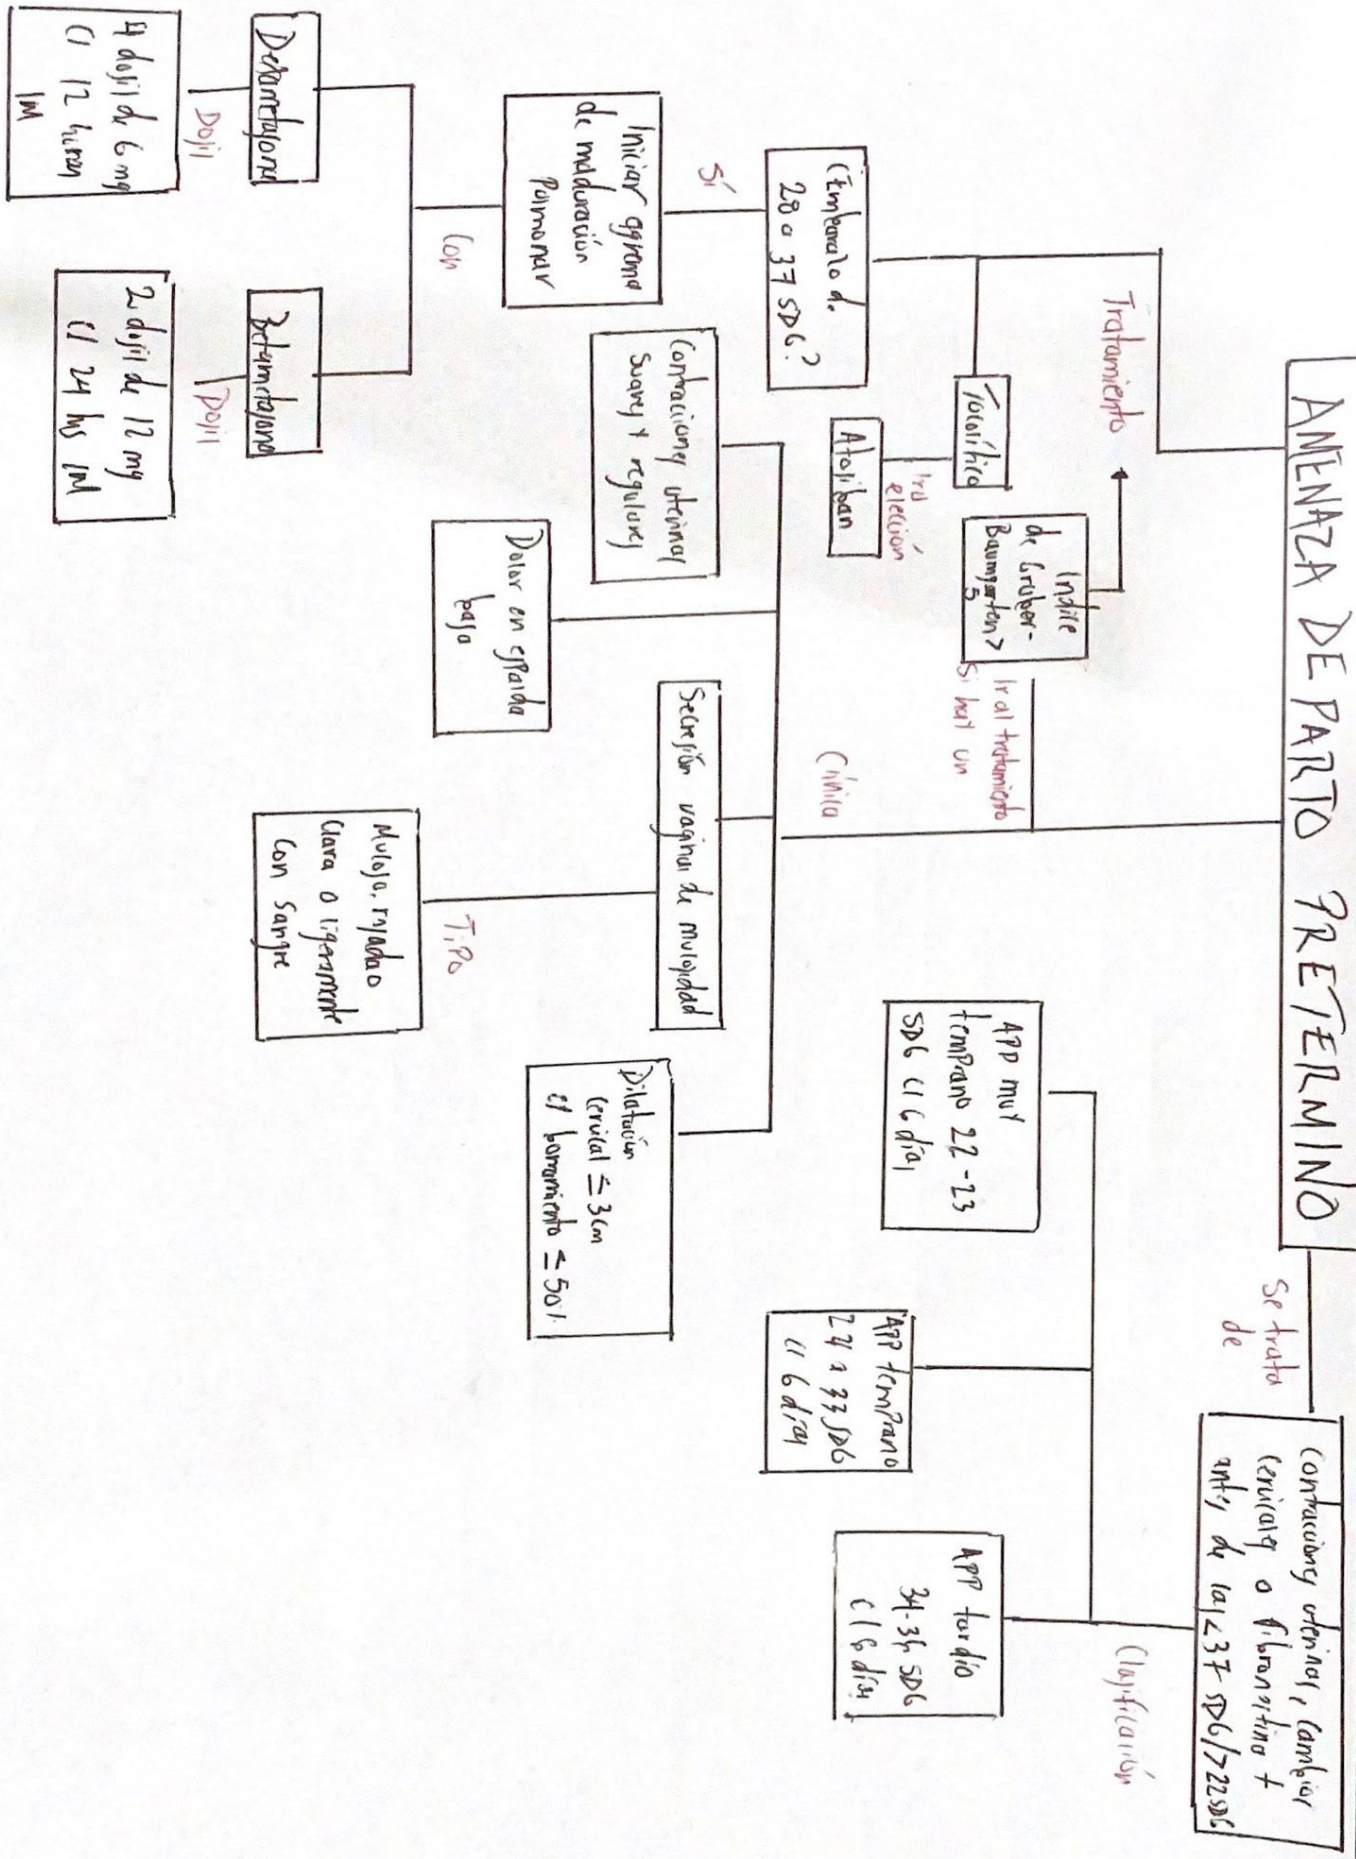 AMENAZA DE PARTO PRETERMINO
Se trata
de
Contracciones uterinas, cambios
cervicales o fibronectina +
antes de las <37 SDG/>22SDG
Clasificación
APP muy
temprano 22-23
SDG C/ 6 días
APP temprano
24 a 33 SDG
C/ 6 días
APP tardío
34-36 SDG
C/ 6 días
Clínica
Contracciones uterinas
suaves y regulares
Dolor en espalda
baja
Secresión vaginal de mucosidad
Tipo
Mucosa, rojada o
clara o ligeramente
con sangre
Dilatación
cervical ≤ 3cm
c/ borramiento ≤ 50%
Ir al tratamiento
si hay un
Indice
de Gruber-
Baumgarten >
5
Tratamiento
Tocolítico
1ra
elección
Atosiban
¿Embarazo de
28 a 37 SDG?
Sí
Iniciar esquema
de maduración
Pulmonar
Con
Dexametasona
Dosis
4 dosis de 6 mg
C/ 12 horas
IM
Betametasona
Dosis
2 dosis de 12 mg
C/ 24 hrs IM